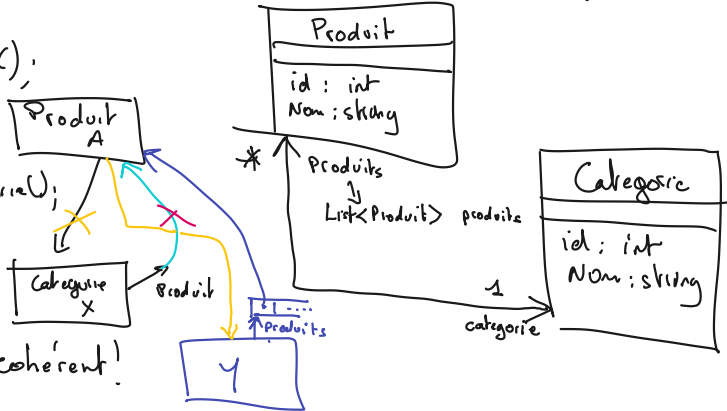 );
Produit
A
();
Categorie
X
Produit
cohérent!
produits
Y
Produit
id : int
Nom : string
*
Produits
List<Produit> produits
1
categorie
Categorie
id : int
Nom : string